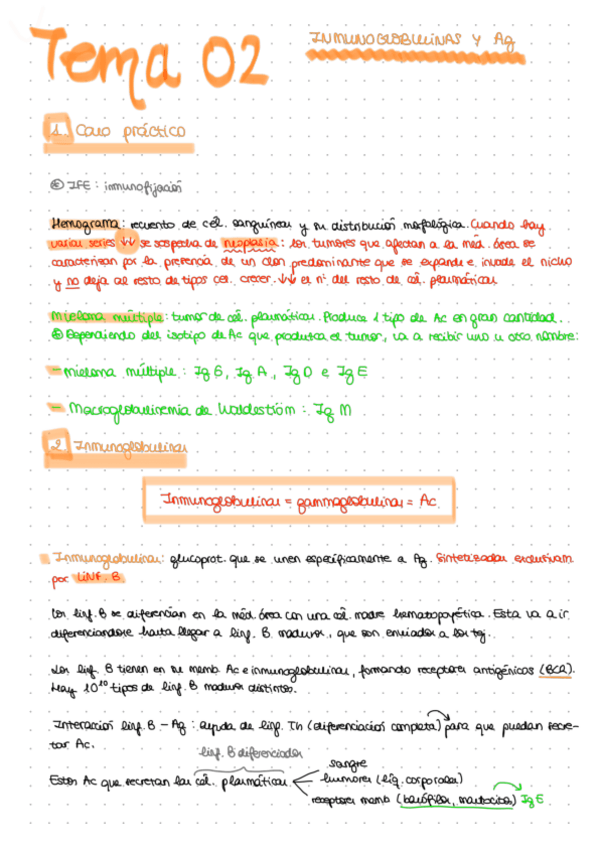 Tema 02
INMUNOGLOBULINAS Y Ag
1. Caso práctico
* IFE: inmunofijación
Hemograma: recuento de cél. sanguíneas y su distribución morfológica. Cuando hay
varias series ↓↓ se sospecha de neoplasia: los tumores que afectan a la méd. ósea se
caracterizan por la presencia de un clon predominante que se expande e invade el nicho
y no deja al resto de tipos cel. crecer. ↓↓ el nº del resto de cél. plasmáticas
Mieloma múltiple: tumor de cél. plasmáticas. Produce 1 tipo de Ac en gran cantidad.
* Dependiendo del isotipo de Ac que produzca el tumor, va a recibir uno u otro nombre:
- Mieloma múltiple: Ig G, Ig A, Ig D e Ig E
- Macroglobulinemia de Waldeström: Ig M
2. Inmunoglobulinas
Inmunoglobulinas = gammaglobulinas = Ac
Inmunoglobulinas: glucoprot. que se unen específicamente a Ag. Sintetizadas exclusivam
por LINF. B
Los linf. B se diferencian en la méd. ósea con una cél. madre hematopoyética. Esta va a ir
diferenciandose hasta llegar a linf. B maduros, que son enviados a los tej.
Los linf. B tienen en su memb Ac e inmunoglobulinas, formando receptores antigénicos (BCR).
Hay 10¹⁰ tipos de linf. B maduros distintos.
Interacción linf. B - Ag: ayuda de linf. Th (diferenciación completa) para que puedan secre-
tar Ac.
linf. B diferenciados
Estos Ac que secretan las cél. plasmáticas
sangre
humores (líq. corporales)
receptores memb (basófilos, mastocitos) Ig E